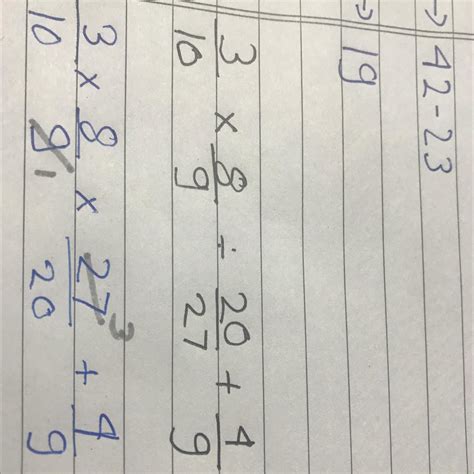 → 42-23
→ 19
3/10 × 8/9 ÷ 20/27 + 4/9
3/10 × 8/9 1 × 27/20 3 + 4/9